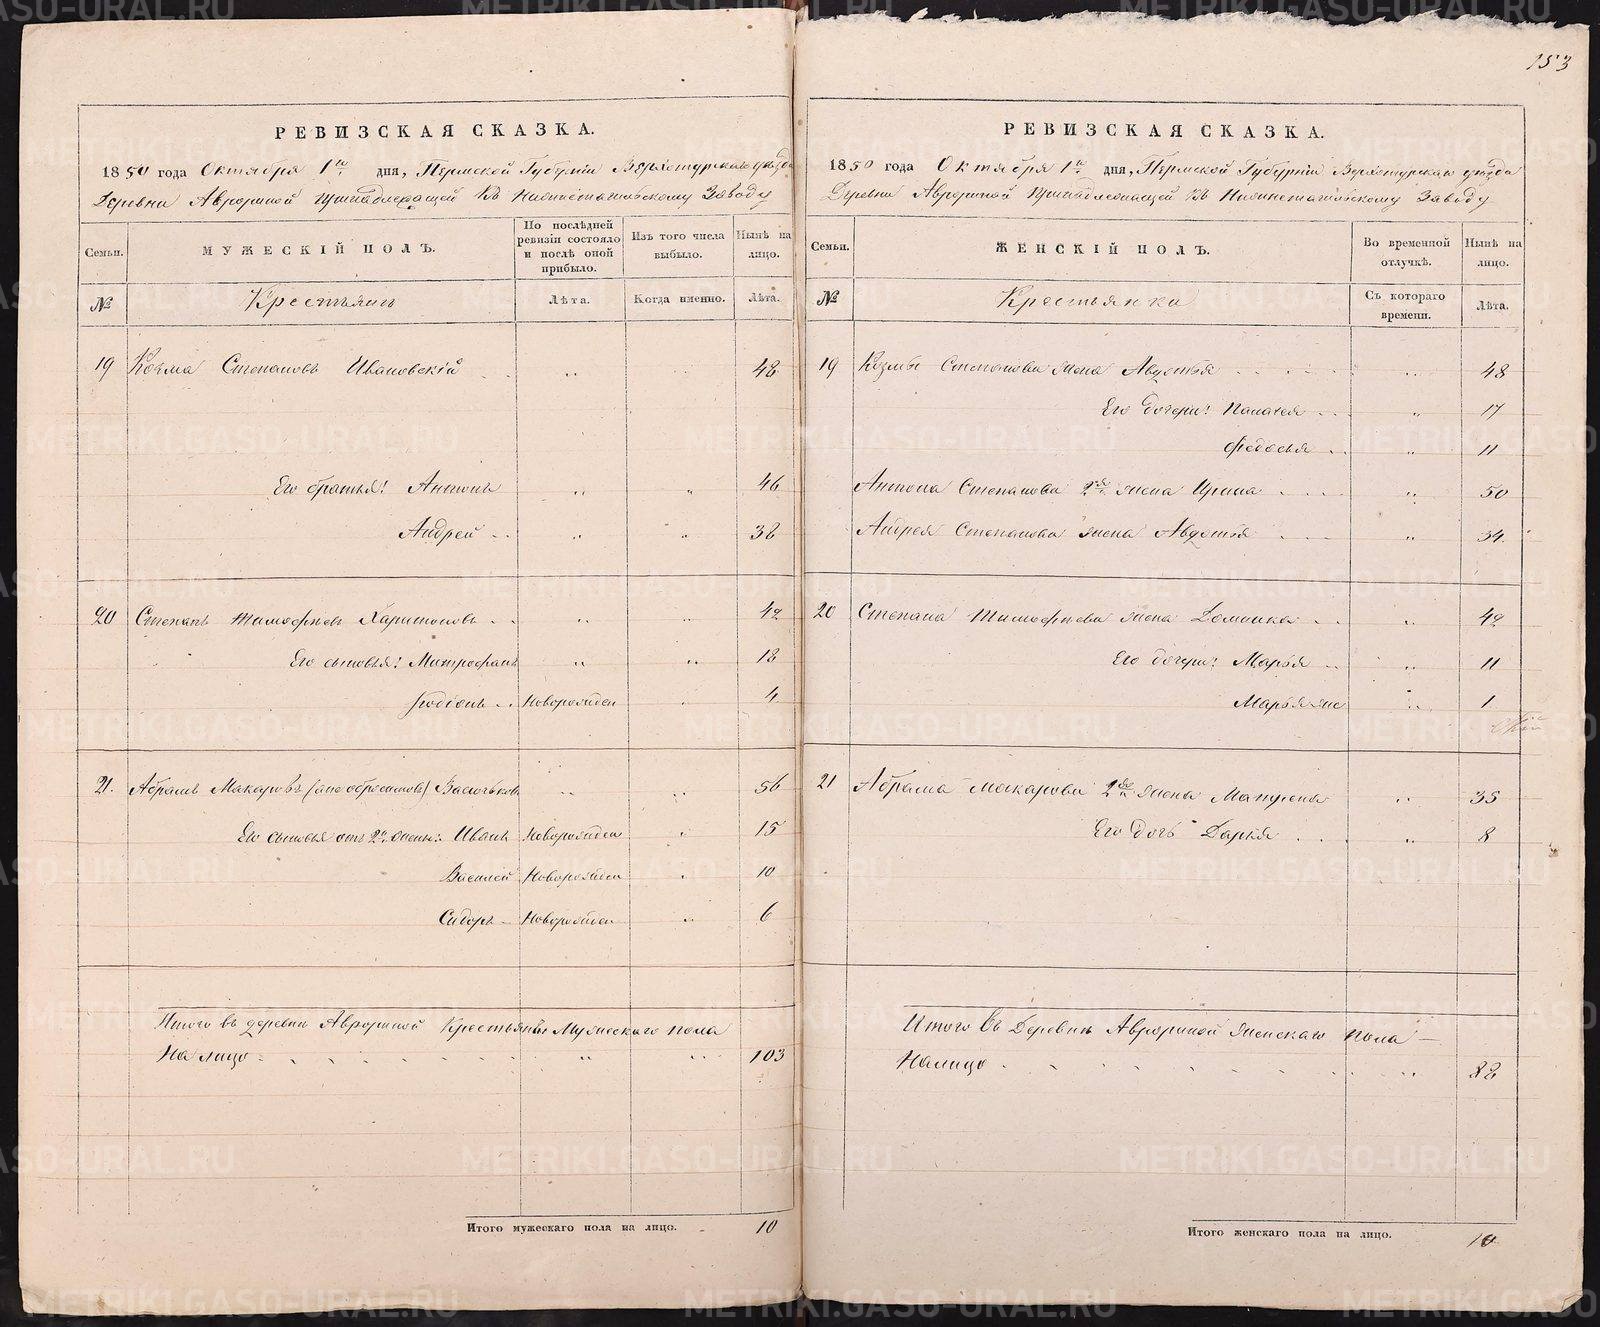 РЕВИЗСКАЯ СКАЗКА.
1850 года Октября 1го дня, Пермской Губернии Верхотурскаго уезда
Деревни Аврориной принадлежащей къ Нижнетагильскому Заводу
Семьи. МУЖЕСКІЙ ПОЛЪ. По послѣдней ревизіи состояло и послѣ оной прибыло. Изъ того числа выбыло. Нынѣ на лицо.
№ Крестьянъ Лѣта. Когда именно. Лѣта.
19 Козма Степановъ Ивановскій 48
Его братья: Антонъ 46
Андрей 38
20 Степанъ Тимофѣевъ Харитоновъ 42
Его сыновья: Митрофанъ 18
Родіонъ Новорожден 4
21. Абрамъ Макаровъ (ано Васильков 56
Его сыновья отъ 2й жены: Иванъ Новорожден 15
Василей Новорожден 10
Сидоръ Новорожден 6
Итого въ деревни Аврориной Крестьянъ Мужескаго пола
На лицо 103
Итого мужескаго пола на лицо. 10
153
РЕВИЗСКАЯ СКАЗКА.
1850 года Октября 1го дня, Пермской Губерніи Верхотурскаго уѣзда
Деревни Аврориной принадлежащей къ Нижнетагильскому Заводу
Семьи. ЖЕНСКІЙ ПОЛЪ. Во временной отлучкѣ. Нынѣ на лицо.
№ Крестьянки Съ котораго времени. Лѣта.
19 Козмы Степанова жена Авдотья 48
Его дочери: Палагея 17
Федосья 11
Антона Степанова 2я жена Ирина 50
Андрея Степанова жена Авдотья 34
20 Степана Тимофѣева жена Домника 42
Его дочери: Марья 11
Марья же 1
21 Абрама Макарова 2я жена Матрена 35
Его дочь Дарья 8
Итого въ Деревни Аврориной женскаго пола
Налицо 82
Итого женскаго пола на лицо. 10
METRIKI.GASO-URAL.RU